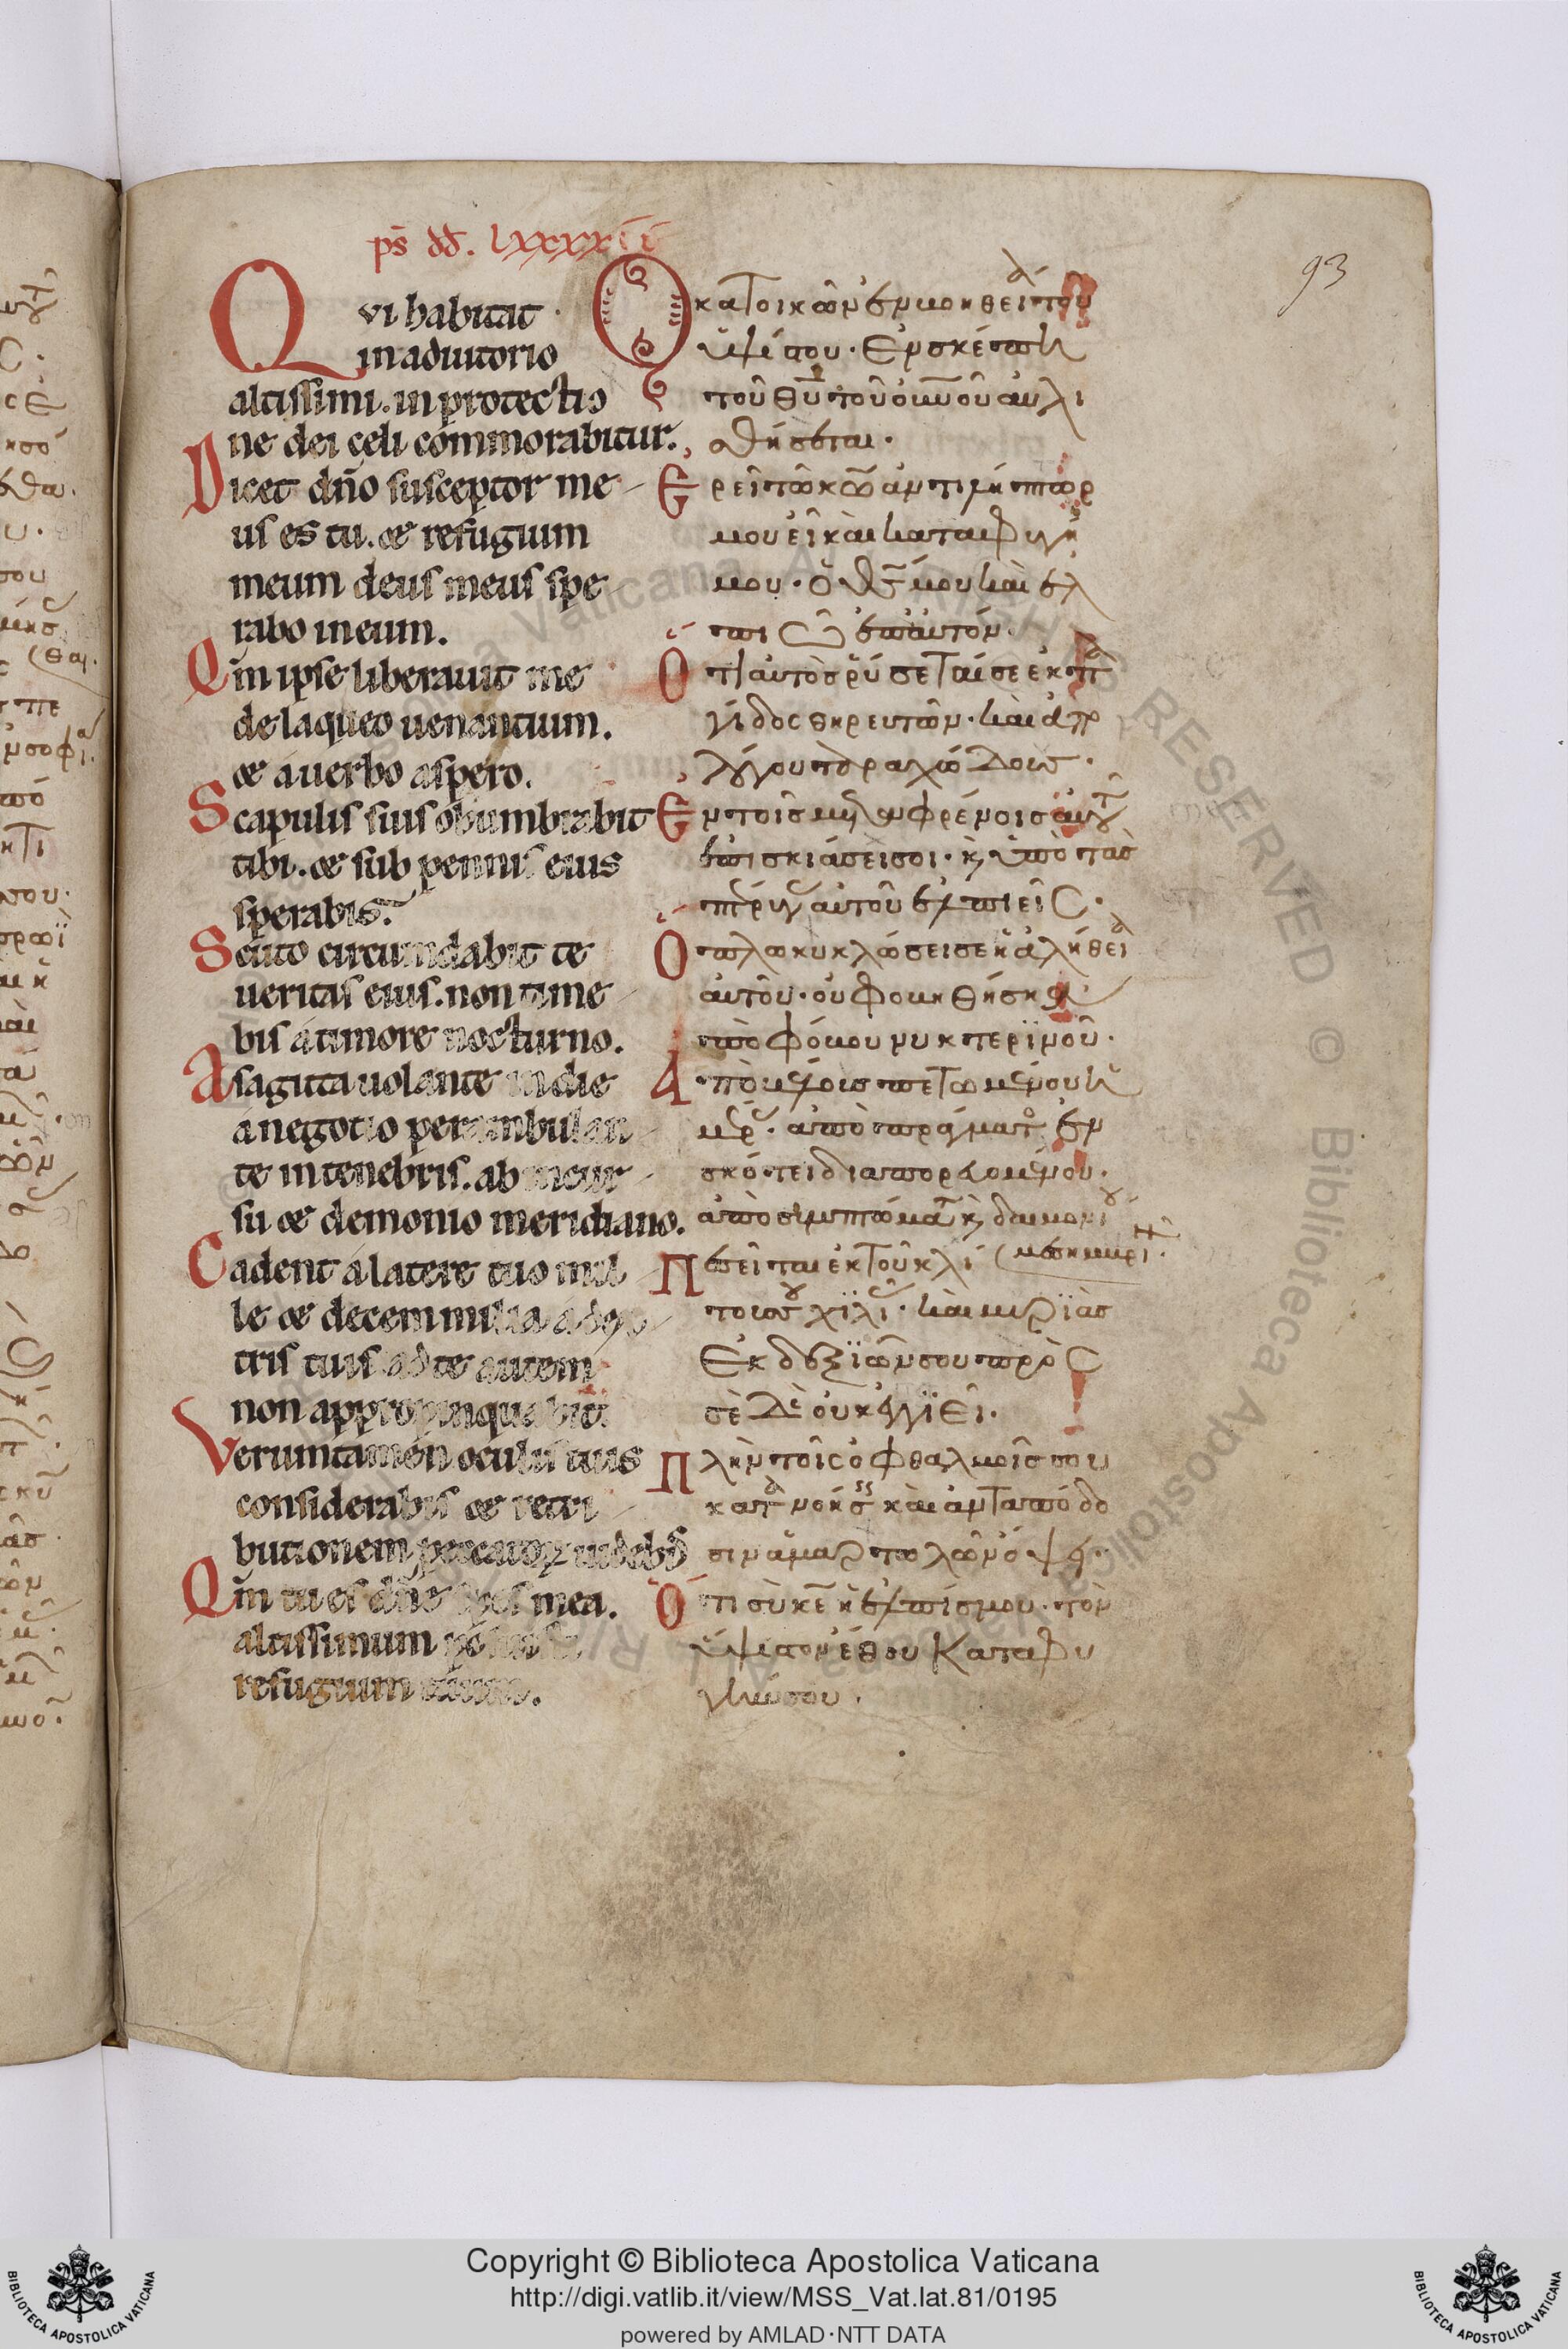 ps̄ dd̄. lxxxxii
93
Qui habitat
in adiutorio
altissimi. in protectio
ne dei celi commorabitur.
Dicet dño susceptor me
us es tu. & refugium
meum deus meus spe
rabo in eum.
Qm̄ ipse liberauit me
de laqueo uenantium.
& a uerbo aspero.
Scapulis suis obumbrabit
tibi. & sub pennis eius
sperabis.
Scuto circumdabit te
ueritas eius. non time
bis a timore nocturno.
A sagitta uolante in die
a negotio perambulan
te in tenebris. ab incur
su & demonio meridiano.
Cadent a latere tuo mil
le & decem milia a dex
tris tuis ad te autem
non appropinquabit.
Veruntamen oculis tuis
considerabis & retri
butionem peccatoꝝ uideb
Qm̄ tu es dñe spes mea.
altissimum
refugium tuum.
Ὁ κατοικῶν ἐν βοηθείᾳ τοῦ
ὑψίστου. Ἐν σκέπῃ
τοῦ θῡ τοῦ οὐ̅νοῦ αὐλι
σθήσεται.
Ἐρεῖ τῶ κω̅ ἀντιλήπτωρ
μου εἶ καὶ καταφυγή
μου. ὁ θς̅ μου καὶ ἐλ
πιῶ ἐπ' αὐτόν.
Ὅτι αὐτὸς ῥύσεταί σε ἐκ πα
γίδος θηρευτῶν. καὶ ἀπὸ
λόγου ταραχώδους.
Ἐν τοῖς μεταφρένοις αὐτοῦ
ἐπισκιάσει σοι. κ̀ ὑπὸ τὰς
πτέρυγας αὐτοῦ ἐλπιεῖς.
Ὅπλω κυκλώσει σε ἡ ἀλήθεια
αὐτοῦ. οὐ φοβηθήσῃ
ἀπὸ φόβου νυκτερινοῦ.
Ἀπὸ βέλους πετωμένου
ἡμέρας. ἀπὸ πράγματος ἐν
σκότει διαπορευομένου.
ἀπὸ συμπτώματος κ̀ δαιμονίου
μεσημβρινοῦ.
Πεσεῖται ἐκ τοῦ κλί
τους σου χιλιάς. καὶ μυριὰς
Ἐκ δεξιῶν σου πρὸς
σὲ δὲ οὐκ ἐγγιεῖ.
Πλὴν τοῖς ὀφθαλμοῖς σου
κατανοήσεις καὶ ἀνταπόδο
σιν ἁμαρτωλῶν ὄψει.
Ὅτι σὺ κε̅ ἡ ἐλπίς μου. τὸν
ὕψιστον ἔθου Καταφυ
γήν σου.
Copyright © Biblioteca Apostolica Vaticana
http://digi.vatlib.it/view/MSS_Vat.lat.81/0195
powered by AMLAD·NTT DATA